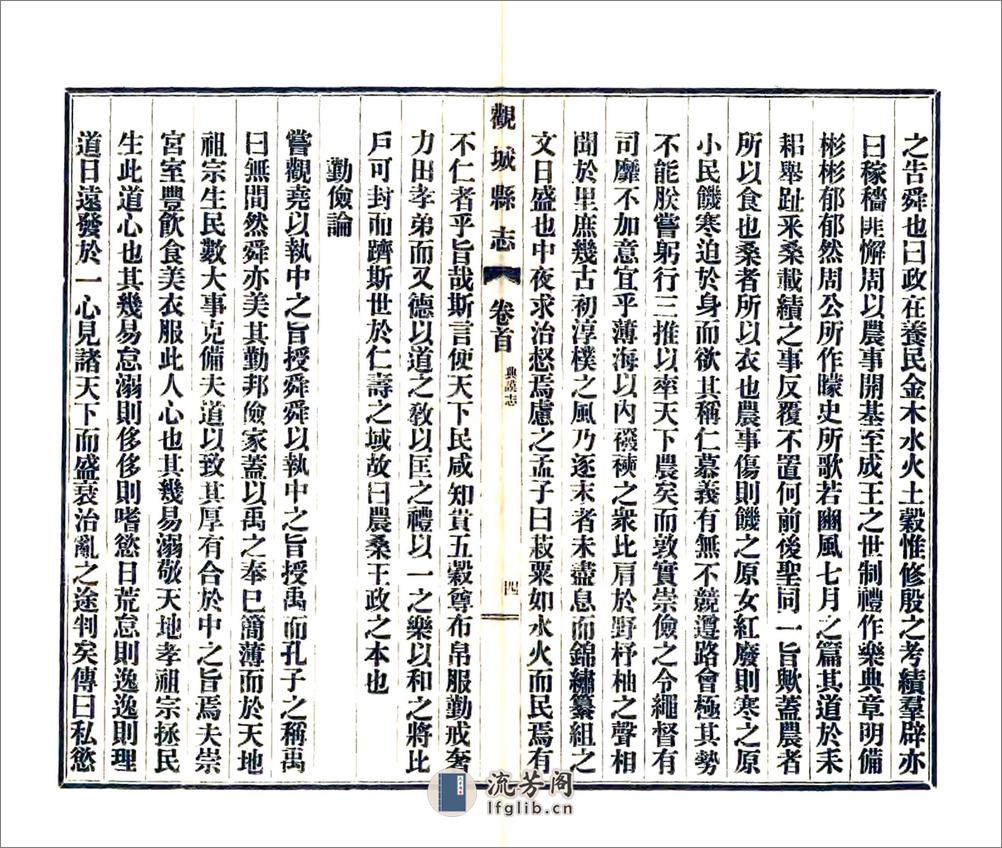 之告舜也曰政在養民金木水火土穀惟修殷之考績羣辟亦
曰稼穡匪懈周以農事開基至成王之世制禮作樂典章明備
彬彬郁郁然周公所作矇史所歌若豳風七月之篇其道於耒
耜舉趾采桑載績之事反覆不置何前後聖同一旨歟蓋農者
所以食也桑者所以衣也農事傷則饑之原女紅廢則寒之原
小民饑寒迫於身而欲其稱仁慕義有無不競遵路會極其勢
不能朕嘗躬行三推以率天下農矣而敦實崇儉之令繩督有
司靡不加意宜乎薄海以內襏襫之衆比肩於野杼柚之聲相
聞於里庶幾古初淳樸之風乃逐末者未盡息而錦繡纂組之
文日盛也中夜求治惄焉慮之孟子曰菽粟如水火而民焉有
觀城縣志
卷首
典謨志
四
不仁者乎旨哉斯言使天下民咸知貴五穀尊布帛服勤戒奢
力田孝弟而又德以道之教以匡之禮以一之樂以和之將比
戶可封而躋斯世於仁壽之域故曰農桑王政之本也
勤儉論
嘗觀堯以執中之旨授舜舜以執中之旨授禹而孔子之稱禹
曰無間然舜亦美其勤邦儉家蓋以禹之奉巳簡薄而於天地
祖宗生民數大事克備夫道以致其厚有合於中之旨焉夫崇
宮室豐飲食美衣服此人心也其幾易溺敬天地孝祖宗拯民
生此道心也其幾易怠溺則侈侈則嗜慾日荒怠則逸逸則理
道日遠發於一心見諸天下而盛衰治亂之途判矣傳曰私慾
流芳阁
lfglib.cn